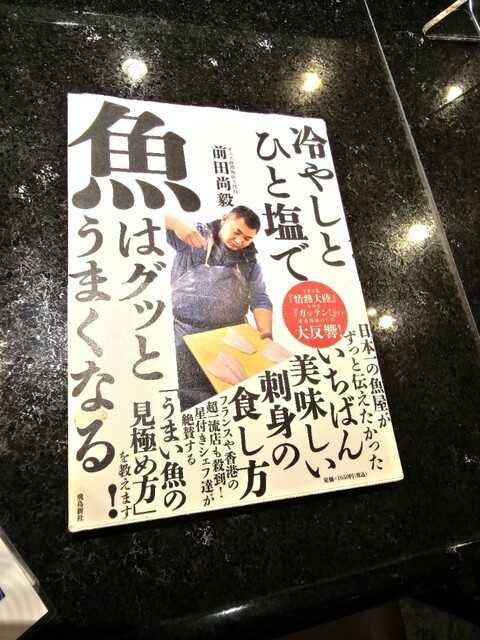 冷やしと
ひと塩で
魚はグッと
うまくなる
前田尚毅
『情熱大陸』
『ガッテン!』
大反響!
日本一の魚屋が
ずっと伝えたかった
いちばん
美味しい
刺身の
食し方
フランスや香港の
超一流店も殺到!
星付きシェフ達が
絶賛する
「うまい魚の
見極め方」
を教えます!
定価=1650円(税込)
飛鳥新社